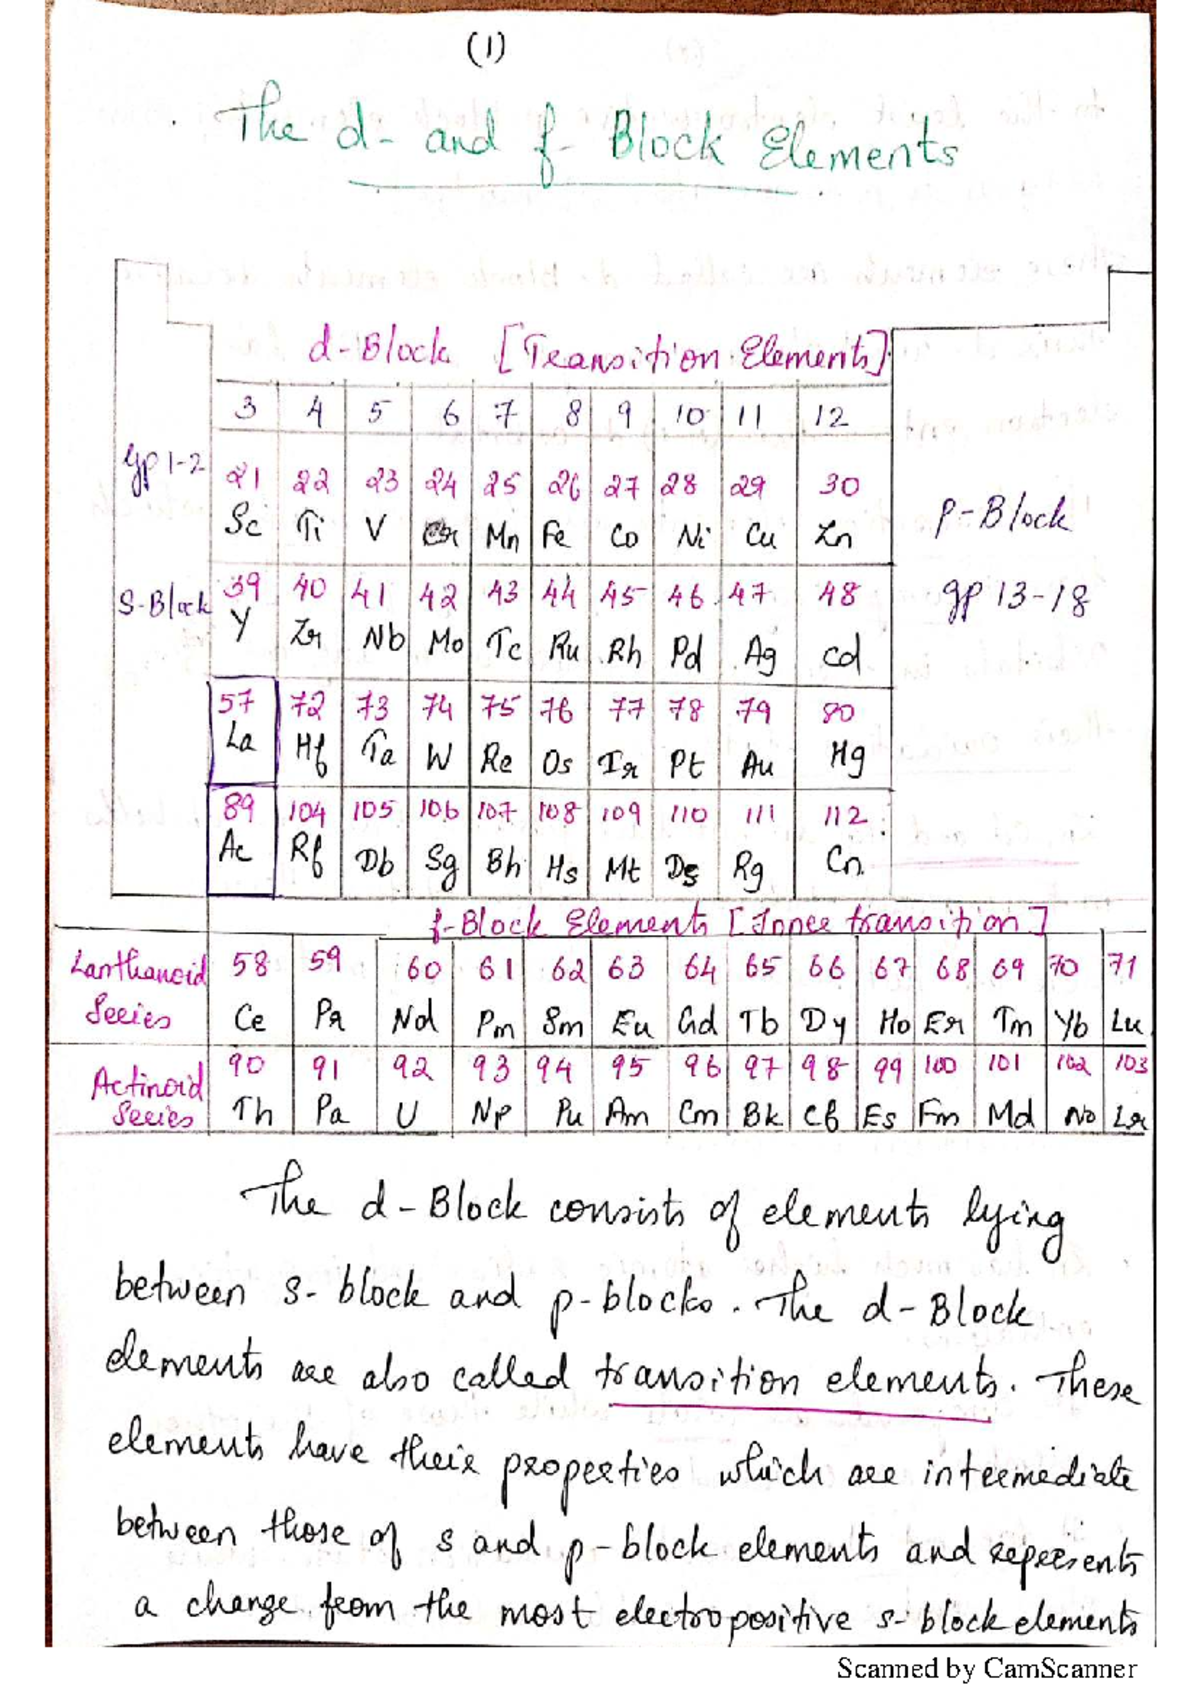 (1)
The d- and f- Block Elements
d-Block [Transition Elements]
3 4 5 6 7 8 9 10 11 12
Gp 1-2
21 22 23 24 25 26 27 28 29 30
Sc Ti V Cr Mn Fe Co Ni Cu Zn
p-Block
39 40 41 42 43 44 45 46 47 48
S-Block
gp 13-18
Y Zr Nb Mo Tc Ru Rh Pd Ag Cd
57 72 73 74 75 76 77 78 79 80
La Hf Ta W Re Os Ir Pt Au Hg
89 104 105 106 107 108 109 110 111 112
Ac Rf Db Sg Bh Hs Mt Ds Rg Cn
f-Block Elements [Inner transition]
Lanthanoid 58 59 60 61 62 63 64 65 66 67 68 69 70 71
Series Ce Pr Nd Pm Sm Eu Gd Tb Dy Ho Er Tm Yb Lu
Actinoid 90 91 92 93 94 95 96 97 98 99 100 101 102 103
Series Th Pa U Np Pu Am Cm Bk Cf Es Fm Md No Lr
The d-Block consists of elements lying
between s-block and p-blocks. The d-Block
elements are also called transition elements. These
elements have their properties which are intermediate
between those of s and p-block elements and represents
a change from the most electropositive s-block elements
Scanned by CamScanner